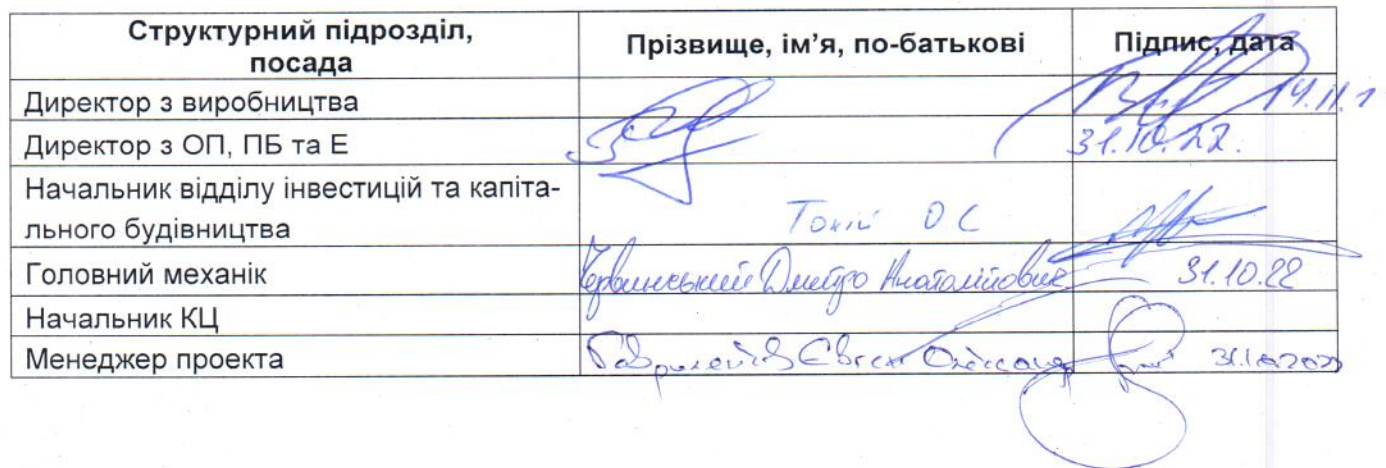 Структурний підрозділ, посада Прізвище, ім'я, по-батькові Підпис, дата
Директор з виробництва 14.11.
Директор з ОП, ПБ та Е 31.10.22.
Начальник відділу інвестицій та капіта-
льного будівництва О С
Головний механік Червинський Дмитро Анатолійович 31.10.22
Начальник КЦ
Менеджер проекта